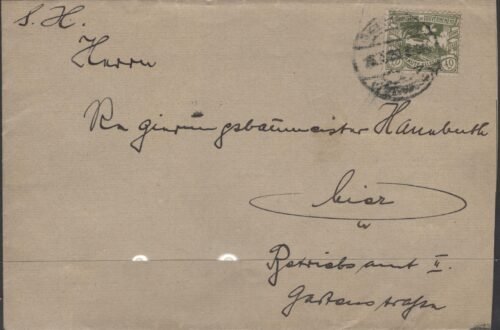 S. H.
Herrn
Regierungsbaumeister
hier
Betriebsamt II.
Gartenstraße
10